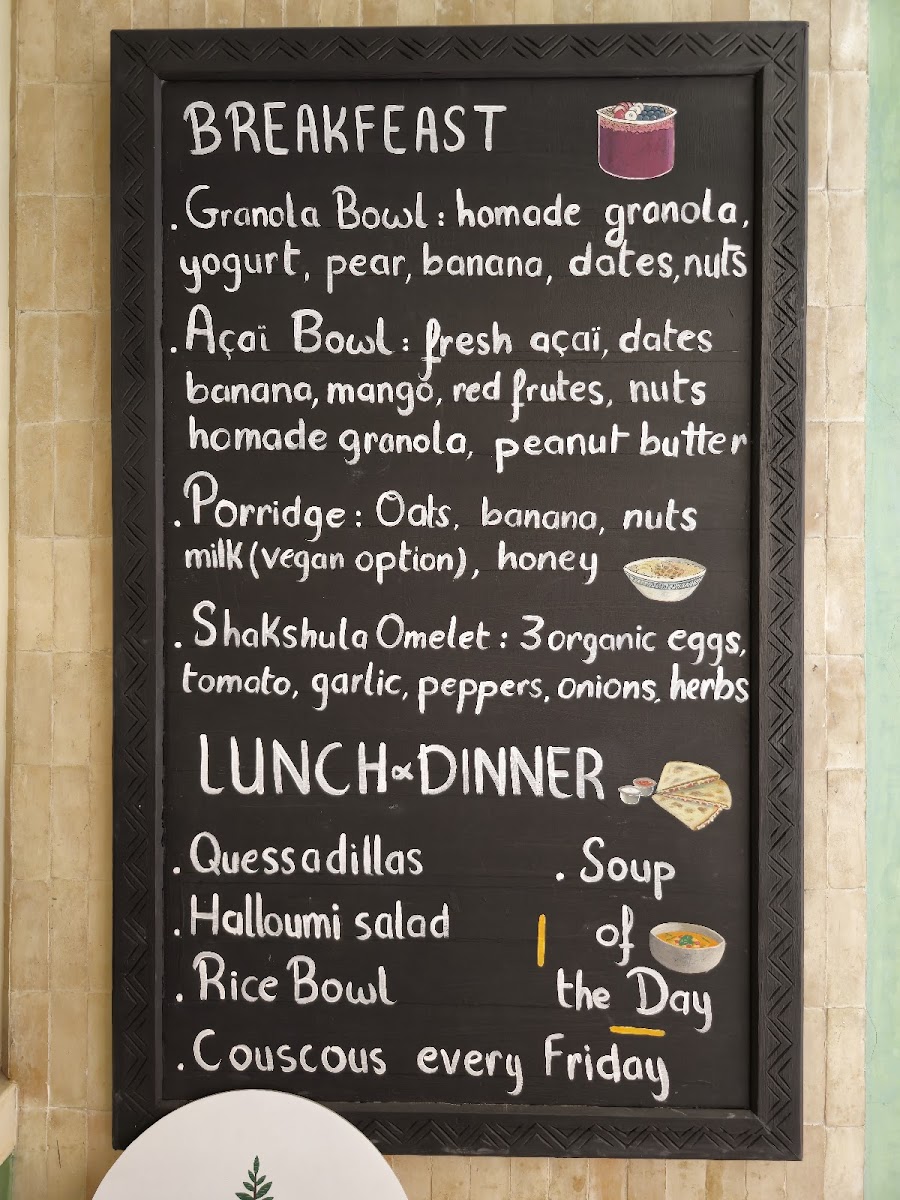 BREAKFEAST
. Granola Bowl : homade granola,
yogurt, pear, banana, dates, nuts
. Açaï Bowl : fresh açaï, dates
banana, mango, red frutes, nuts
homade granola, peanut butter
. Porridge : Oats, banana, nuts
milk (vegan option), honey
. Shakshula Omelet : 3 organic eggs,
tomato, garlic, peppers, onions, herbs
LUNCH & DINNER
. Quessadillas
. Halloumi salad
. Rice Bowl
. Soup
of
the Day
. Couscous every Friday